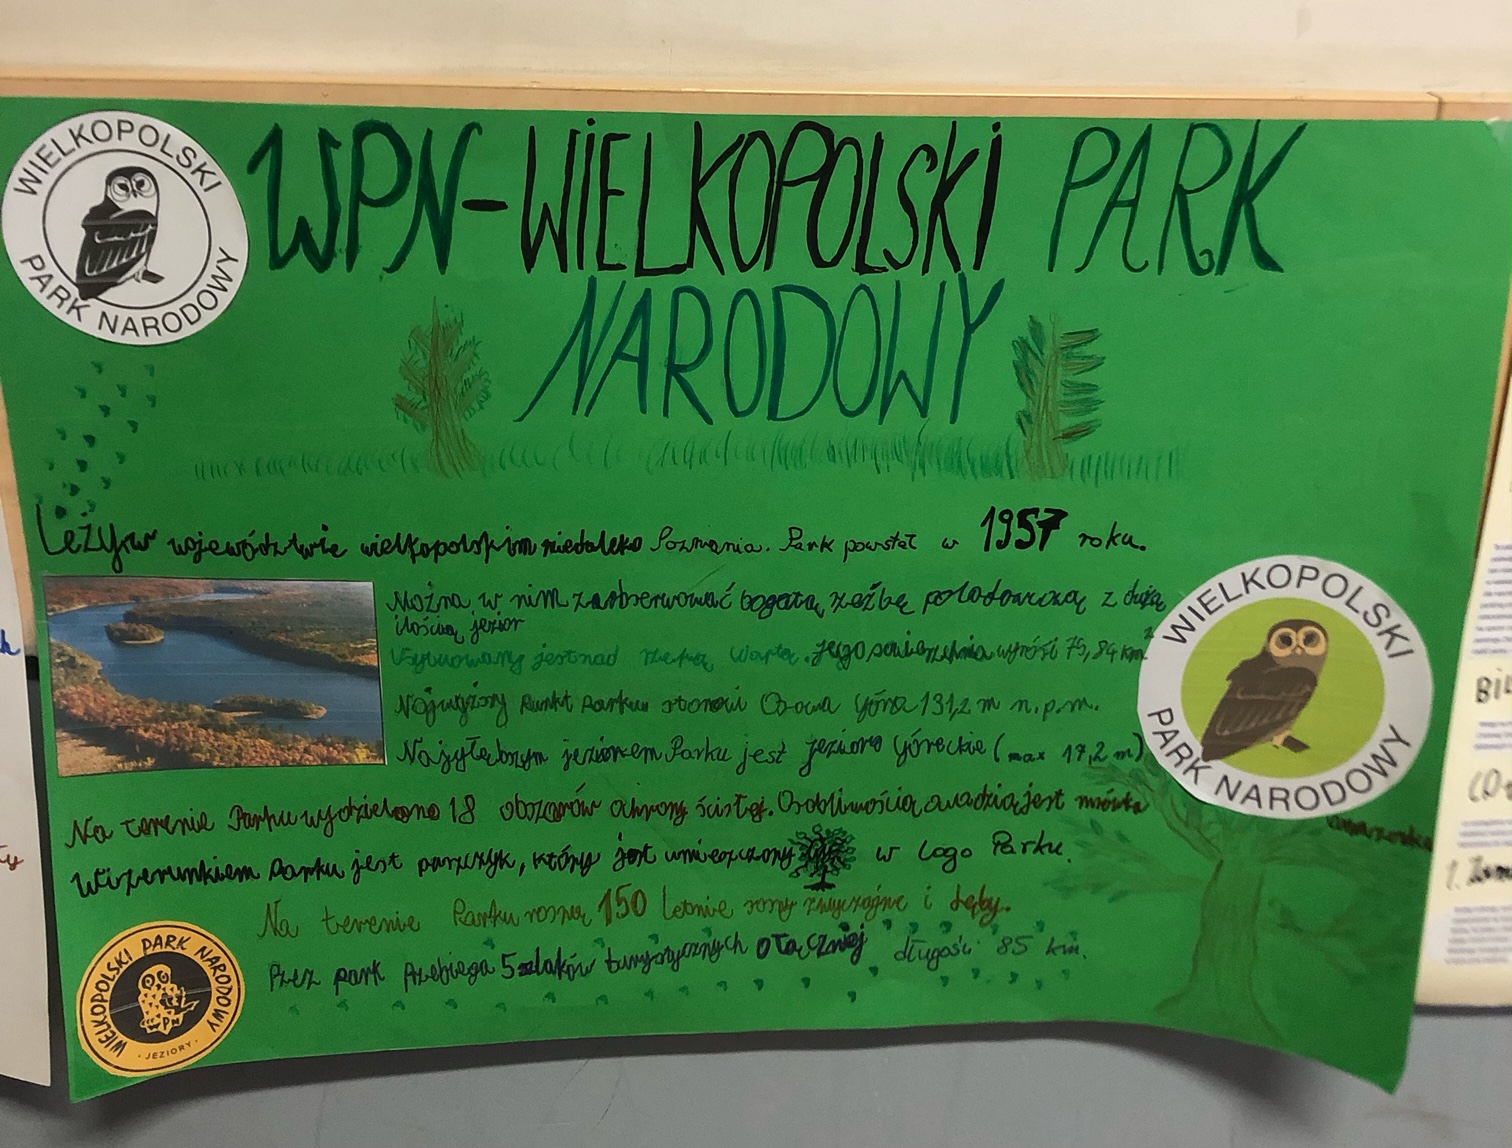 WIELKOPOLSKI
PARK NARODOWY
WPN-WIELKOPOLSKI PARK
NARODOWY
Leży w województwie wielkopolskim niedaleko Poznania. Park powstał w 1957 roku.
Można w nim zaobserwować bogatą rzeźbę polodowcową z dużą
ilością jezior
Usytuowany jest nad rzeką Wartą. Jego powierzchnia wynosi 75,84 km²
Najwyższy Punkt Parku stanowi Osowa Góra 131,2 m n.p.m.
Najgłębszym jeziorem Parku jest jezioro Góreckie (max 17,2 m)
WIELKOPOLSKI
PARK NARODOWY
Na terenie Parku wydzielono 18 obszarów ochrony ścisłej. Osobliwością owadzią jest mrówka
Wizerunkiem Parku jest puszczyk, który jest umieszczony w Logo Parku.
Na terenie Parku rosną 150 letnie sosny zwyczajne i dęby.
Przez park przebiega 5 szlaków turystycznych o łącznej długości 85 km.
WIELKOPOLSKI PARK NARODOWY
WPN
· JEZIORY ·